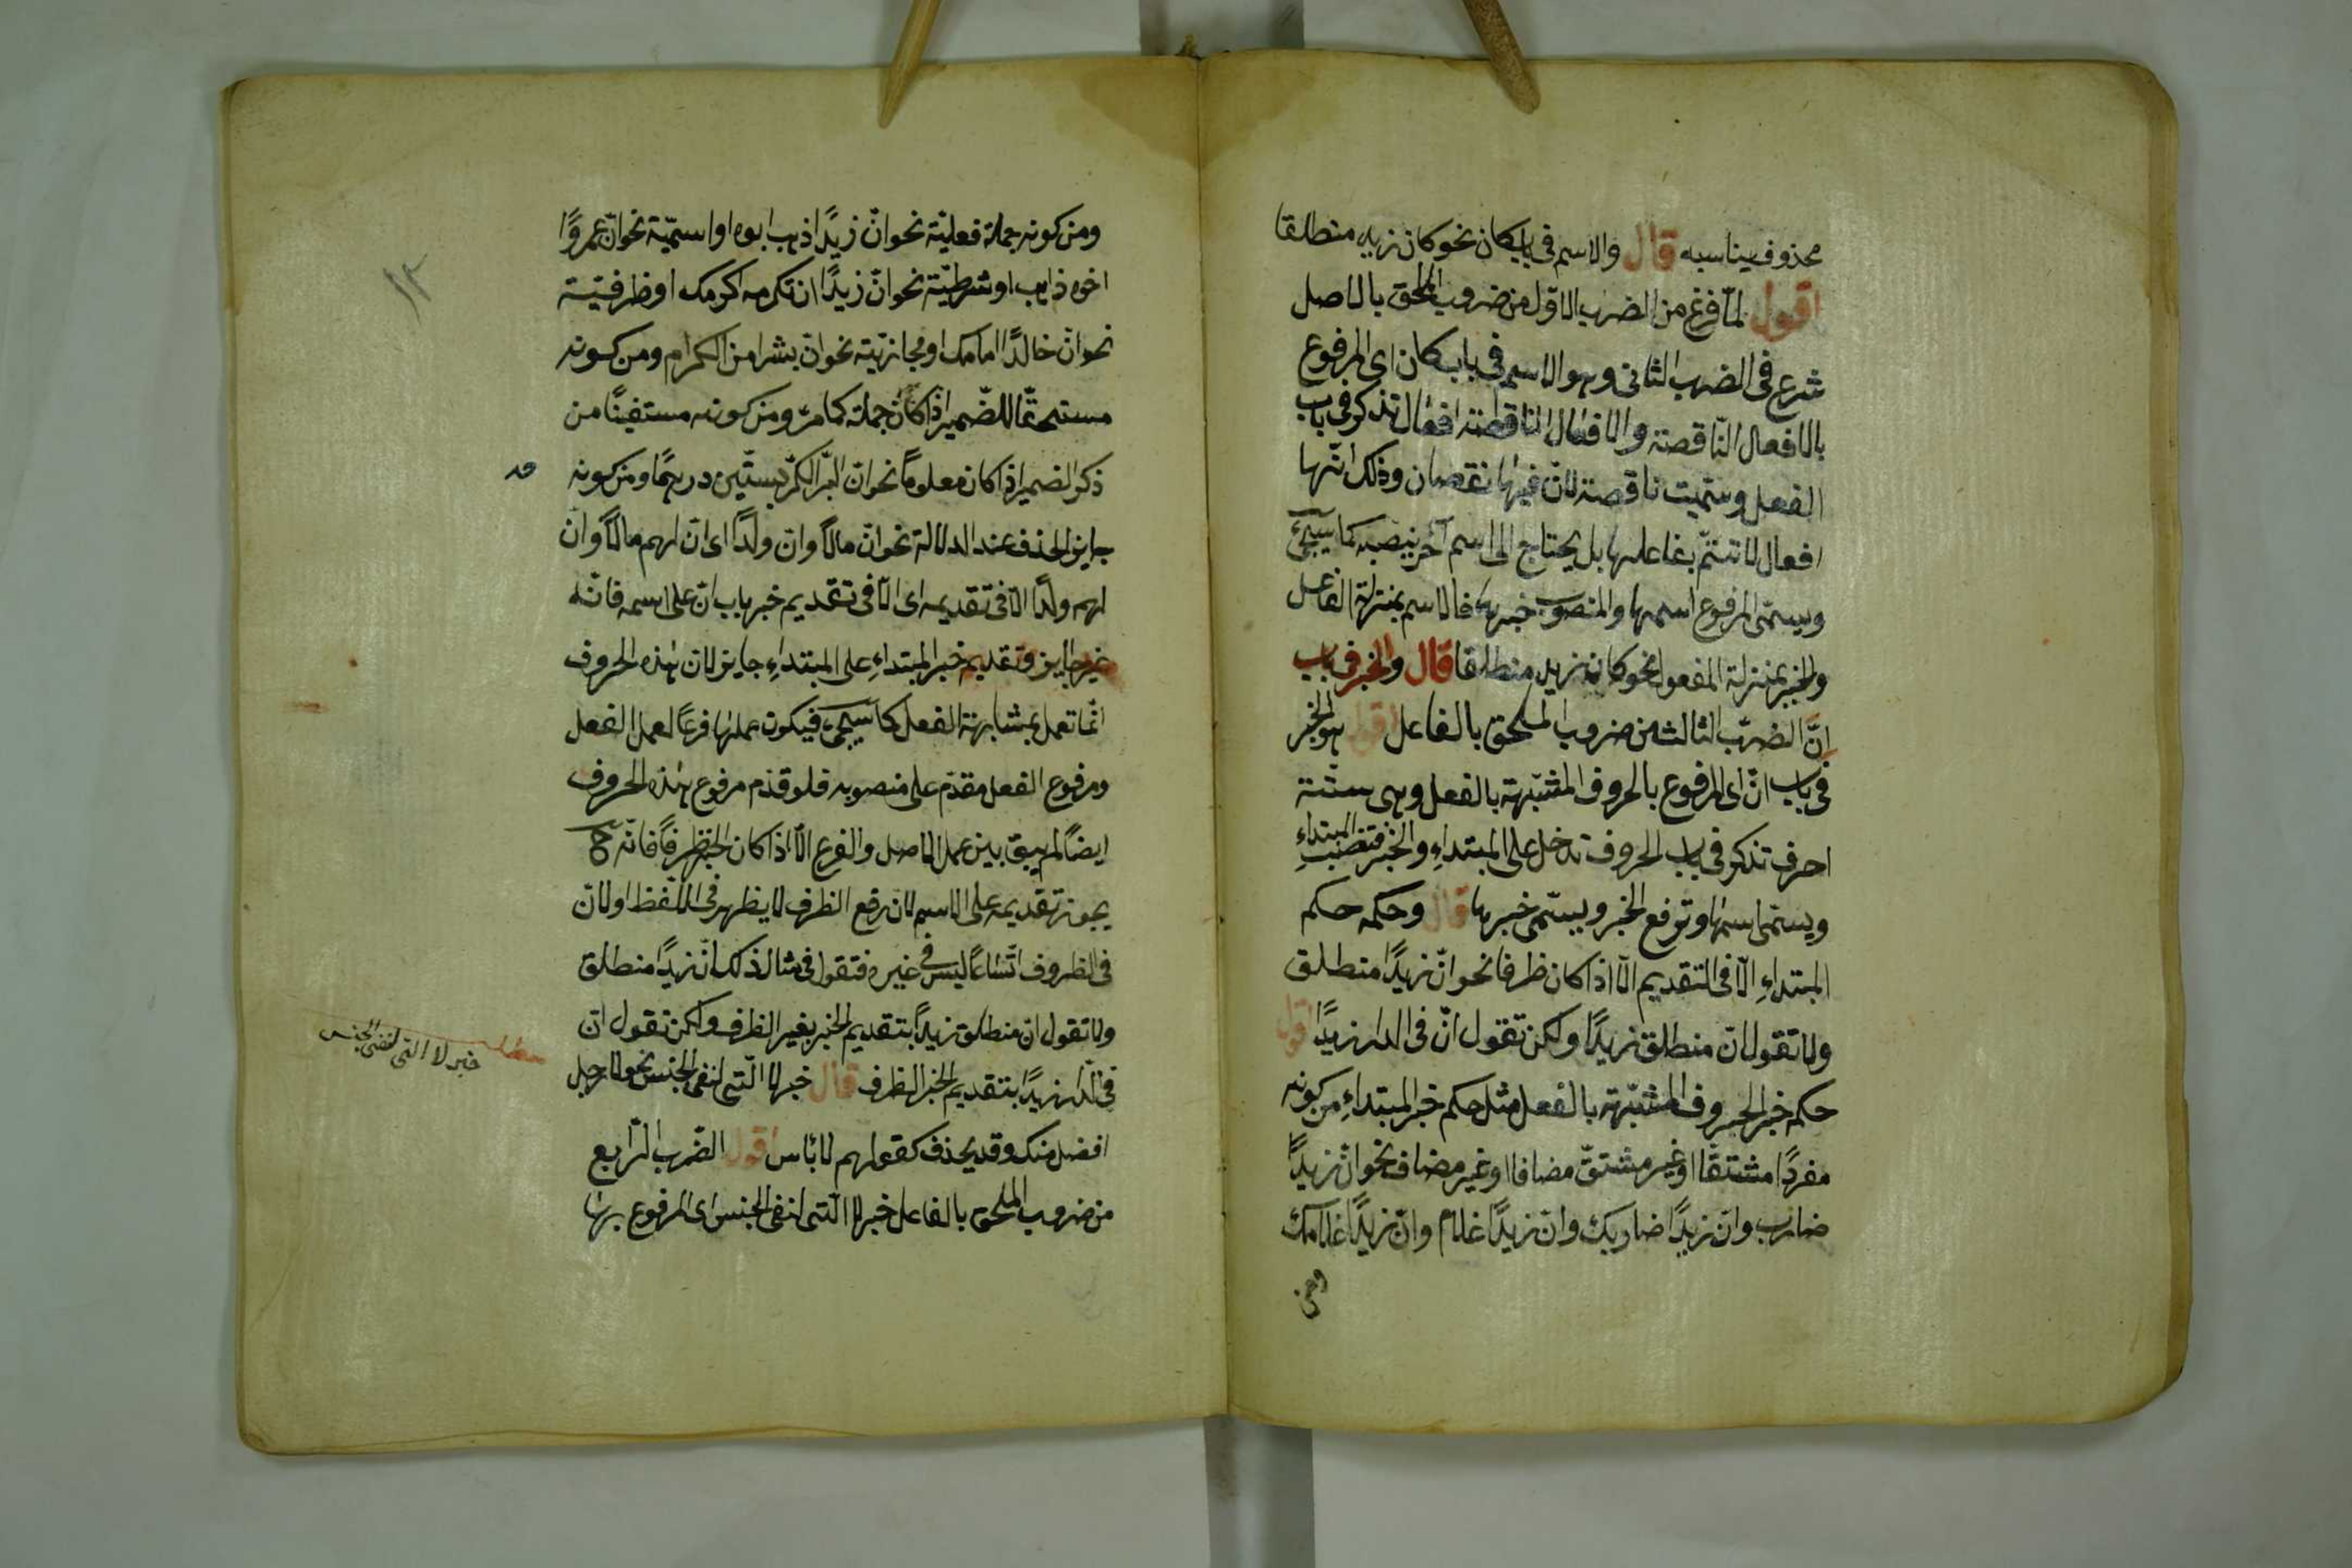 محذوف يناسبه قال والاسم فى باب كان نحو كان زيد منطلقا
اقول لمّا فرغ من الضرب الاوّل من ضروب الملحق بالاصل
شرع فى الضرب الثانى وهو الاسم فى باب كان اى المرفوع
بالافعال النّاقصة والافعال الناقصة افعال تذكر فى باب
الفعل وسمّيت ناقصة لانّ فيها نقصان وذلك انّها
افعال لا تتمّ بفاعلها بل يحتاج الى اسم آخر ينصبه كما سيجئ
ويسمّى المرفوع اسمها والمنصوب خبرها فالاسم بمنزلة الفاعل
والخبر بمنزلة المفعول نحو كان زيد منطلقا قال والخبر فى باب
انّ الضرب الثالث من ضروب الملحق بالفاعل اقول هو الخبر
فى باب انّ اى المرفوع بالحروف المشبّهة بالفعل وهى ستّة
احرف تذكر فى باب الحروف تدخل على المبتداء والخبر فتنصب المبتداء
ويسمّى اسمها وترفع الخبر ويسمّى خبرها قال وحكمه حكم
المبتداء الّا فى التقديم الّا اذا كان ظرفا نحو انّ زيدًا منطلق
ولا تقول انّ منطلق زيدًا ولكن تقول انّ فى الدار زيدًا اقول
حكم خبر الحروف المشبّهة بالفعل مثل حكم خبر المبتداء من كونه
مفردًا مشتقّا او غير مشتقّ مضافا او غير مضاف نحو انّ زيدًا
ضارب وانّ زيدًا ضاربك وانّ زيدًا غلام وانّ زيدًا غلامك
ومن
١٣
ومن كونه جملة فعليّة نحو انّ زيدًا ذهب ابوه او اسميّة نحو انّ عمروًا
اخوه ذاهب او شرطيّة نحو انّ زيدًا ان تكرمه اكرمك او ظرفيّة
نحو انّ خالدًا امامك او مجازيّة نحو انّ بشرا من الكرام ومن كونه
مستحقّا للضّمير اذا كان جملة كما مرّ ومن كونه مستغنًا من
ذكر الضمير اذا كان معلومًا نحو انّ البرّ الكرّ بستّين درهمًا ومن كونه
جايز الحذف عند الدلالة نحو انّ مالًا وانّ ولدًا اى انّ لهم مالًا وانّ
لهم ولدًا الّا فى تقديمه اى الّا فى تقديم خبر باب انّ على اسمه فانّه
غير جايز وتقديم خبر المبتداء على المبتداء جايز لان هذه الحروف
انّما تعمل بمشابهة الفعل كما سيجئ فيكون عملها فرعًا لعمل الفعل
ومرفوع الفعل مقدّم على منصوبه فلو قدّم مرفوع هذه الحروف
ايضًا لم يبق بين عمل الاصل والفرع الّا اذا كان الخبر ظرفًا فانّه ح
يجوز تقديمه على الاسم لان رفع الظرف لا يظهر فى اللّفظ او لانّ
فى الظروف اتّساعًا ليس فى غيره فتقول فى مثال ذلك انّ زيدًا منطلق
ولا تقول انّ منطلق زيدًا بتقديم الخبر بغير الظرف ولكن تقول انّ
فى الدّار زيدًا بتقديم الخبر الظرف قال خبر لا الّتى لنفى الجنس نحو لا رجل
افضل منك وقد يحذف كقولهم لا بأس اقول الضّرب الرّابع
من ضروب الملحق بالفاعل خبر لا الّتى لنفى الجنس اى المرفوع بها
مطلب
خبر لا التى لنفى الجنس